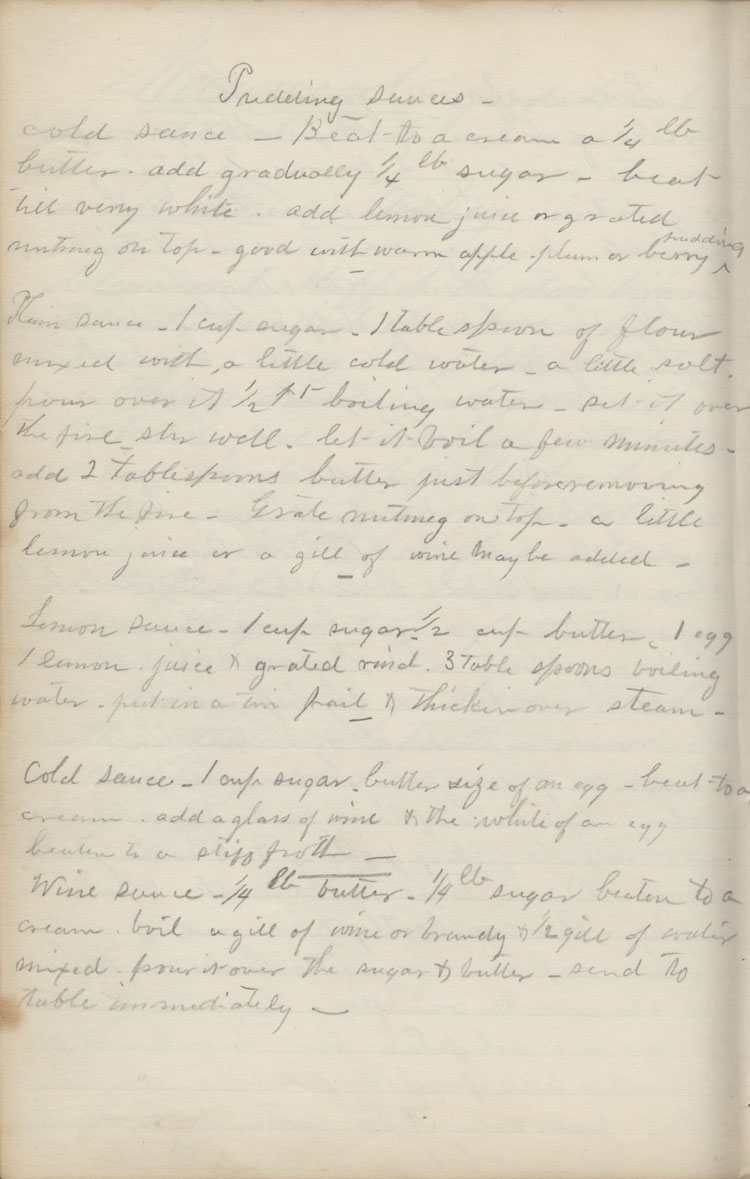 Pudding sauces -
cold sauce - Beat to a cream a 1/4 lb
butter. add gradually 1/4 lb sugar - beat
till very white. add lemon juice or grated
nutmeg on top - good with warm apple. plum or berry pudding
Plain sauce - 1 cup sugar - 1 table spoon of flour
mixed with a little cold water - a little salt.
pour over it 1/2 pt boiling water - set it over
the fire stir well. let it boil a few minutes -
add 2 tablespoons butter just before removing
from the fire - Grate nutmeg on top - a little
lemon juice or a gill of wine may be added -
Lemon sauce - 1 cup sugar 1/2 cup butter, 1 egg
1 lemon. juice & grated rind. 3 table spoons boiling
water. put in a tin pail & thicken over steam -
Cold sauce - 1 cup sugar. butter size of an egg - beat to a
cream. add a glass of wine & the white of an egg
beaten to a stiff froth -
Wine sauce - 1/4 lb butter - 1/4 lb sugar beaten to a
cream. boil a gill of wine or brandy & 1/2 gill of water
mixed. pour it over the sugar & butter - send to
table immediately -